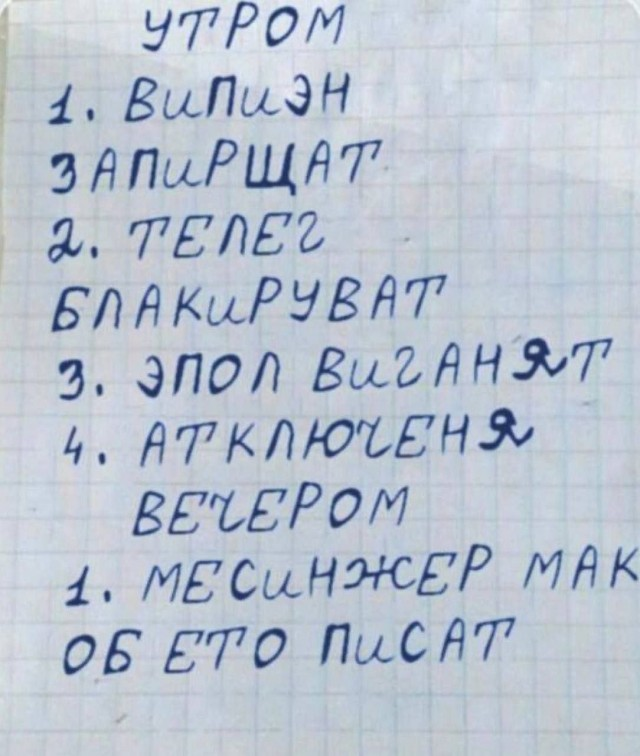 УТРОМ
1. ВиПиЭН
ЗАПиРЩАТ
2. ТЕЛЕГ
БЛАКиРУВАТ
3. ЭПОЛ ВиГАНЯТ
4. АТКЛЮЧЕНЯ
ВЕЧЕРОМ
1. МЕСиНЖЕР МАК
ОБ ЕТО ПиСАТ